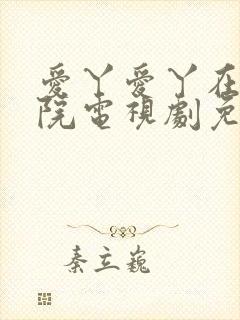 愛丫愛丫在
院電視劇免
秦立巍